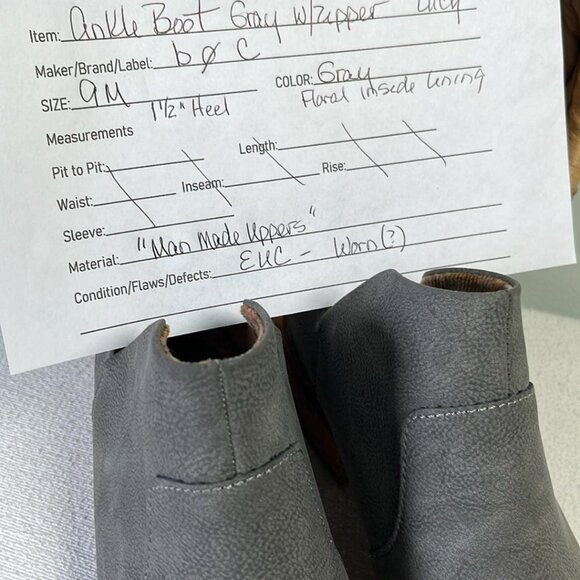 Item: Ankle Boot Gray w/zipper Lucy
Maker/Brand/Label: bøc
SIZE: 9M COLOR: Gray
1½" Heel Floral inside lining
Measurements
Pit to Pit: Length:
Waist: Inseam: Rise:
Sleeve:
Material: "Man Made Uppers"
Condition/Flaws/Defects: EUC - Worn(?)